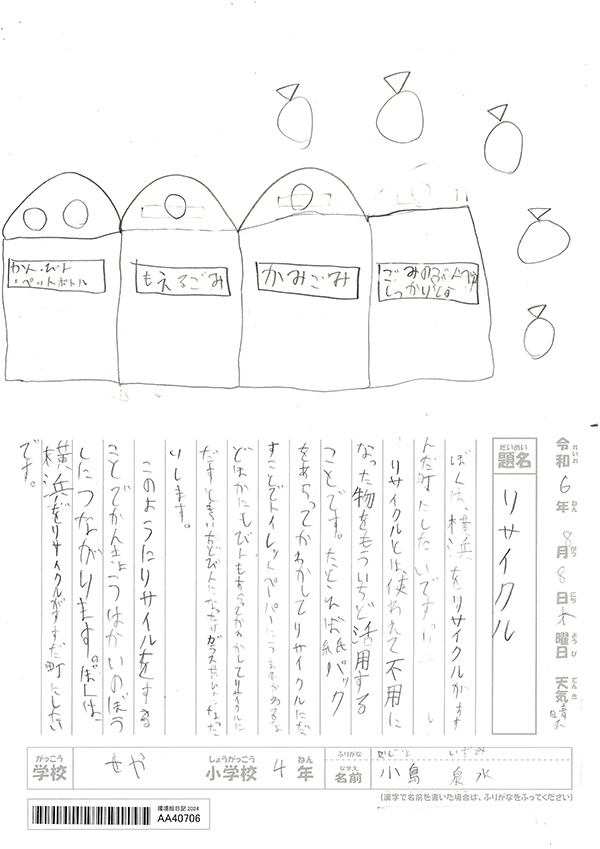 かん・びん
・ペットボトル
もえるごみ
かみごみ
ごみのぶんべつ
しっかりとね
令和6年8月8日木曜日 天気 晴れ
れいわ ねん がつ にち ようび てんき
だいめい
題名
リサイクル
ぼくは、横浜をリサイクルがすす
んだ町にしたいです。
リサイクルとは、使われて不用に
なった物をもういちど活用する
ことです。たとえば紙パック
をあらってかわかしてリサイクルにだ
すことでトイレットペーパーにうまれかわるな
どほかにもびんもあらってかわかしてリサイクルに
だすともういちどびんになったりガラスせいひんになった
りします。
このようにリサイクルをする
ことでかんきょうはかいのぼう
しにつながります。ぼくは、
横浜をリサイクルがすすんだ町にしたい
です。
がっこう
学校
せや
しょうがっこう
小学校
4
ねん
年
ふりがな
こじま いずみ
なまえ
名前
小島 泉水
(漢字で名前を書いた場合は、ふりがなをふってください)
環境絵日記2024
AA40706